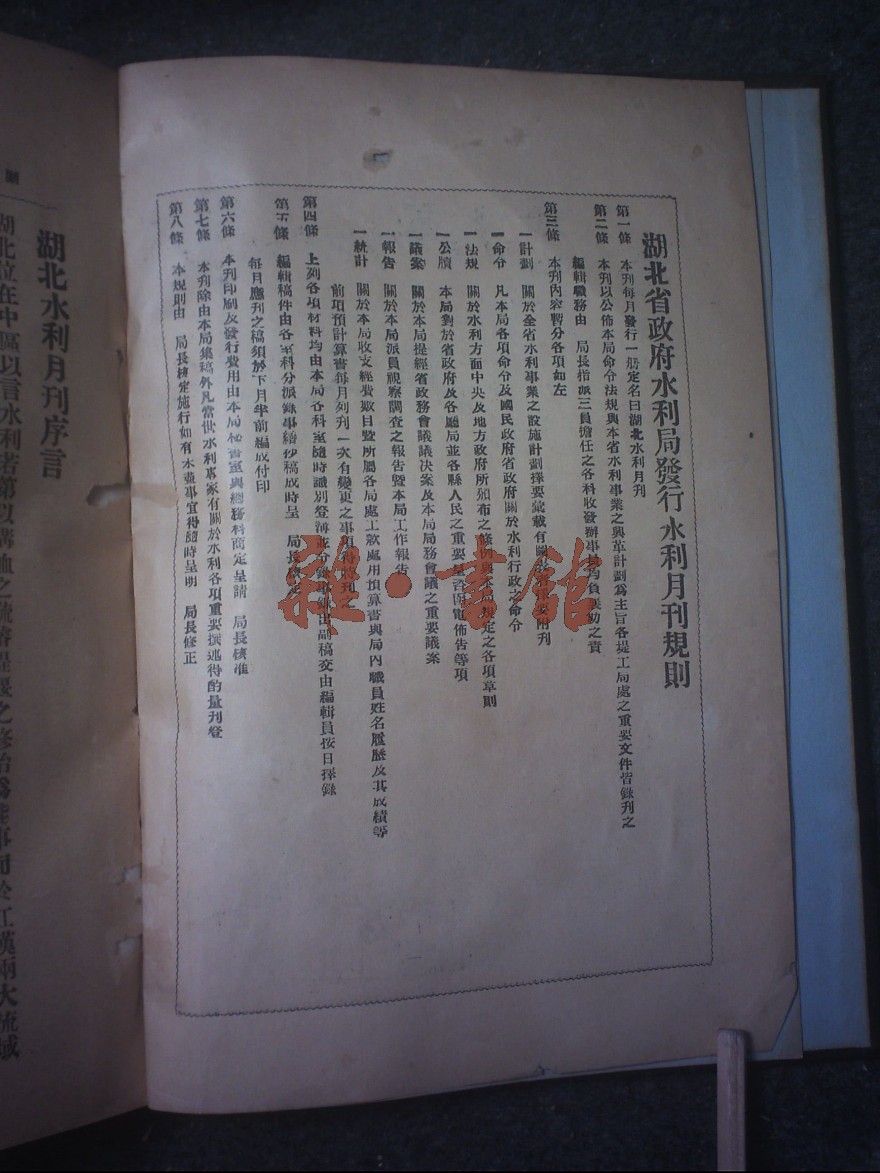 湖北省政府水利局發行水利月刊規則
第一條 本刊每月發行一册定名曰湖北水利月刊
第二條 本刊以公佈本局命令法規與本省水利事業之興革計劃爲主旨各堤工局處之重要文件皆錄刊之
編輯職務由 局長指派三員擔任之各科收發辦事 均負襄助之責
第三條 本刊內容暫分各項如左
一計劃 關於全省水利事業之設施計劃擇要彙載有 附刊
一命令 凡本局各項命令及國民政府省政府關於水利行政之命令
一法規 關於水利方面中央及地方政府所頒布之條例與本局規定之各項章則
一公牘 本局對於省政府及各廳局並各縣人民之重要呈咨函電佈告等項
一議案 關於本局提經省政務會議議決案及本局局務會議之重要議案
一報告 關於本局派員視察調查之報告暨本局工作報告
一統計 關於本局收支經費數目暨所屬各局處工款處用預算書與局內職員姓名履歷及其成績等
前項預計算書每月列刊一次有變更之事項得 刊之
第四條 上列各項材料均由本局各科室隨時識別登簿並分 副稿交由編輯員按日擇錄
第五條 編輯稿件由各室科分派錄事繕抄稿成時呈 局長 定
每月應刊之稿須於下月半前編成付印
第六條 本刊印刷及發行費用由本局秘書室與總務科商定呈請 局長核准
第七條 本刊除由本局集稿外凡當世水利專家有關於水利各項重要撰述得酌量刊登
第八條 本規則由 局長核定施行如有未盡事宜得隨時呈明 局長修正
雜·書館
湖北水利月刊序言
湖北位在中區以言水利者第以溝洫之疏濬堤 之修治爲能事而於江漢兩大流域